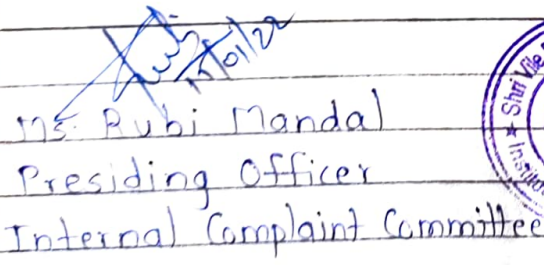 15/01/22
Ms. Rubi Mandal
Presiding Officer
Internal Complaint Committee
Shri Vile